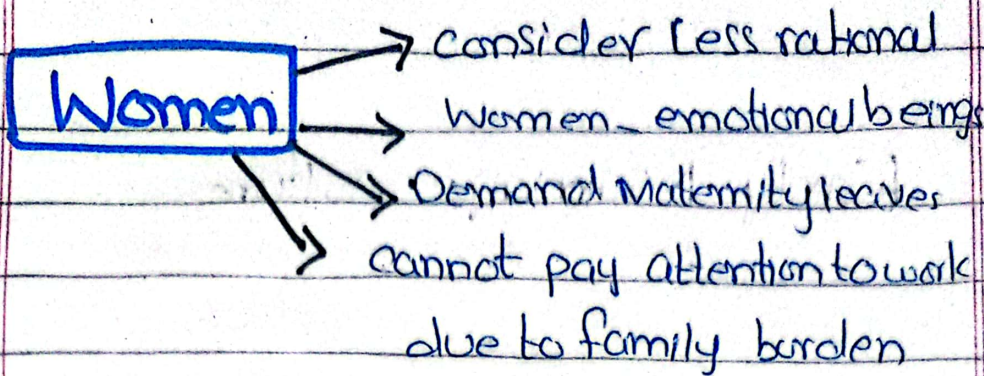 Women
consider less rational
women - emotional beings
Demand Maternity leaves
cannot pay attention to work
due to family burden